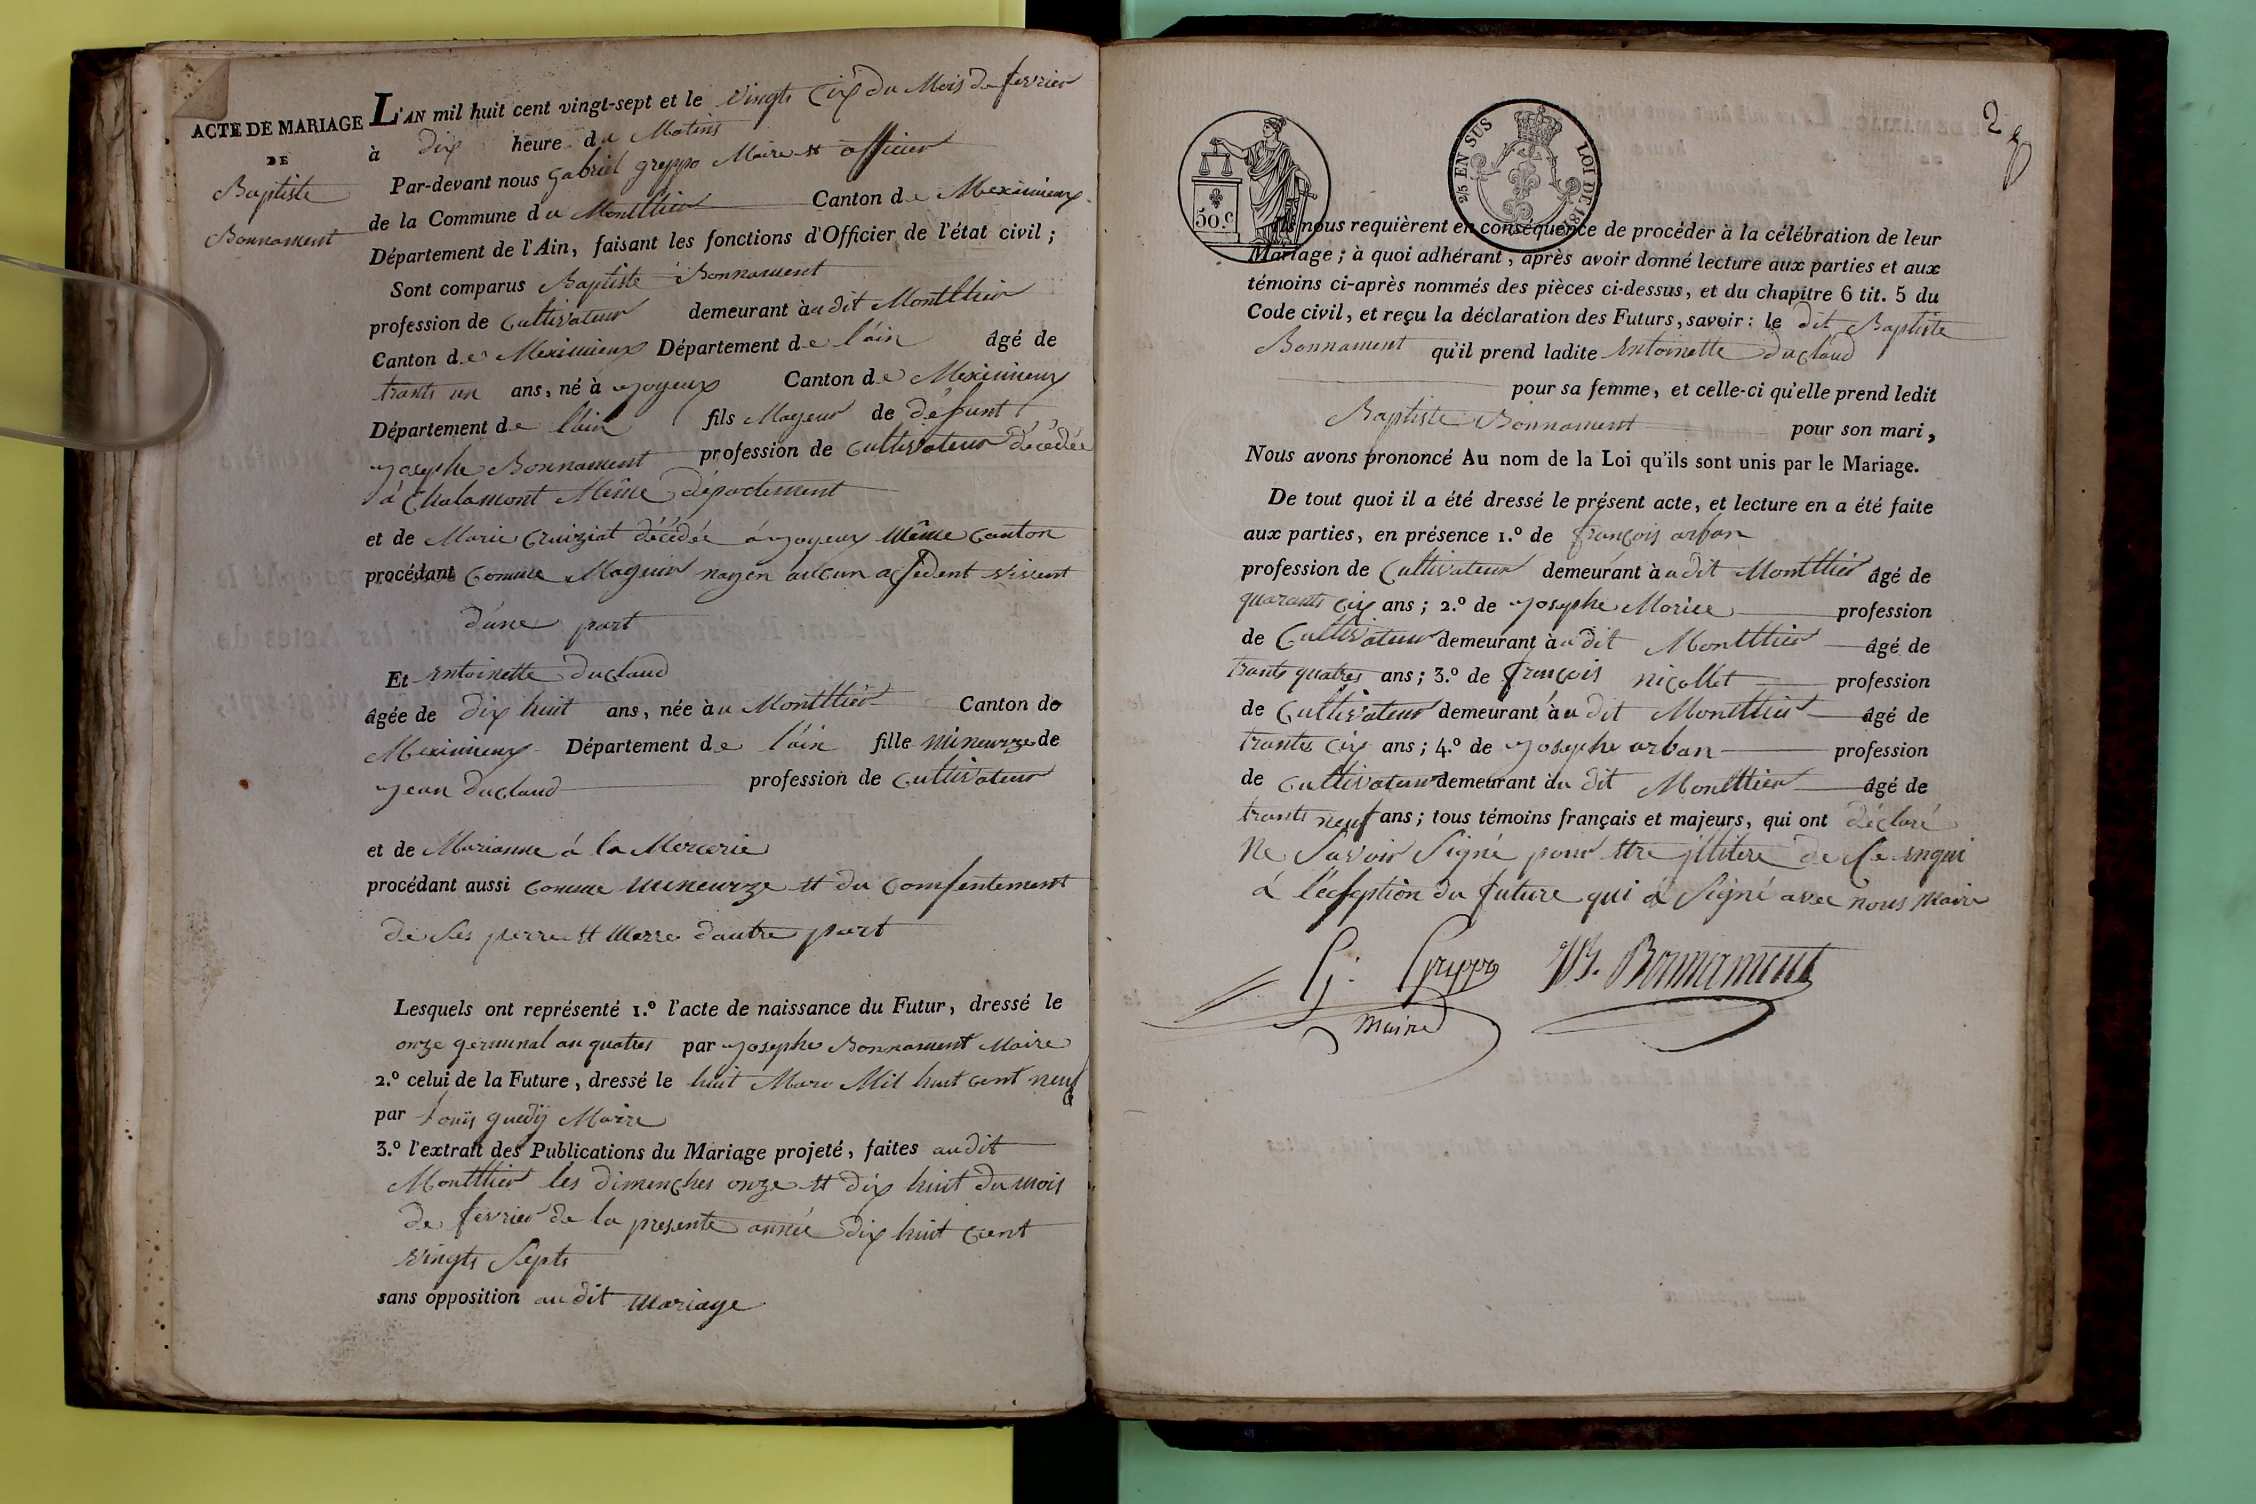 ACTE DE MARIAGE
DE
Baptiste
Bonnament
L'AN mil huit cent vingt-sept et le vingts cix du Mois de fevrier
à dix heure du Matins
Par-devant nous Gabriel greppo Maire et officier
de la Commune du Montthier Canton de Meximieux
Département de l'Ain, faisant les fonctions d'Officier de l'état civil ;
Sont comparus Baptiste Bonnament
profession de Cultivateur demeurant àu dit Montthier
Canton de Meximieux Département de l'ain âgé de
trants un ans, né à Joyeux Canton de Meximieux
Département de l'ain fils Mageur de défunt
Josephe Bonnament profession de Cultivateur décédée
à Chalamont Même département
et de Marie Cruiziat décédée á Joyeux même Canton
procédant Comme Mageur nayen aucun assedent vivent
d'une part
Et Antoinette Duclaud
âgée de dix huit ans, née àu Montthier Canton de
Meximieux Département de l'ain fille mineurze de
Jean Duclaud profession de Cultivateur
et de Marianne á la Mercerie
procédant aussi Comme mineurze et du Comsentement
de Ses perre et Merre d'autre part
Lesquels ont représenté 1.º l'acte de naissance du Futur, dressé le
onze germinal an quatres par Josephe Bonnament Maire
2.º celui de la Future, dressé le huit Mars Mil huit cent neuf
par Louis guedij Maire
3.º l'extrait des Publications du Mariage projeté, faites audit
Montthier les dimenches onze et dix huit du mois
de fevrier de la presente année dix huit Cent
vingts Septs
sans opposition au dit Mariage
2
50.c
2/5 EN SUS LOI DE 18
Ils nous requièrent en conséquence de procéder à la célébration de leur
Mariage ; à quoi adhérant, après avoir donné lecture aux parties et aux
témoins ci-après nommés des pièces ci-dessus, et du chapitre 6 tit. 5 du
Code civil, et reçu la déclaration des Futurs, savoir : le dit Baptiste
Bonnament qu'il prend ladite Antoinette Duclaud
pour sa femme, et celle-ci qu'elle prend ledit
Baptiste Bonnament pour son mari,
Nous avons prononcé Au nom de la Loi qu'ils sont unis par le Mariage.
De tout quoi il a été dressé le présent acte, et lecture en a été faite
aux parties, en présence 1.º de françois arban
profession de Cultivateur demeurant àu dit Montthier âgé de
quarants cix ans ; 2.º de Josephe Morice profession
de Cultivateur demeurant àu dit Montthier âgé de
trants quatres ans ; 3.º de françois nicollet profession
de Cultivateur demeurant àu dit Montthier âgé de
trantes cix ans ; 4.º de Josephe arban profession
de Cultivateur demeurant àu dit Montthier âgé de
trants neuf ans ; tous témoins français et majeurs, qui ont déclaré
Ne Savoir Signé pour ttre de Ce enqui
á l'éxseption du future qui á Signé avec nous Maire
G. Greppo B. Bonnament
Maire